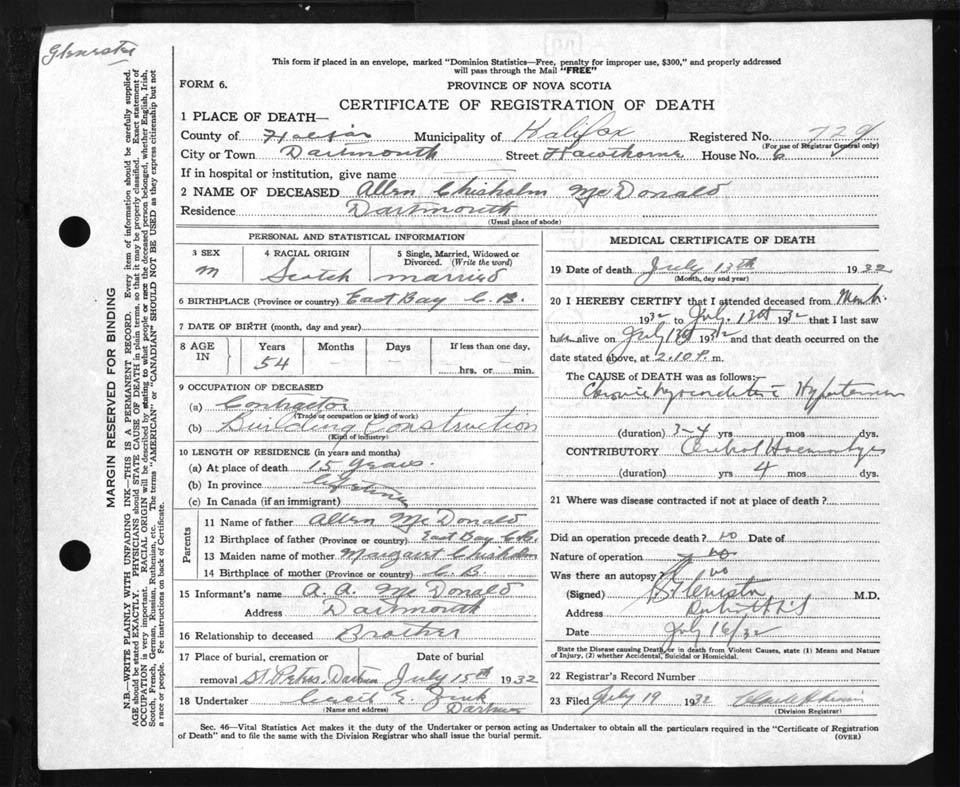 This form if placed in an envelope, marked "Dominion Statistics—Free, penalty for improper use, $300," and properly addressed
will pass through the Mail "FREE"
FORM 6.
PROVINCE OF NOVA SCOTIA
CERTIFICATE OF REGISTRATION OF DEATH
1 PLACE OF DEATH—
County of Halifax Municipality of Halifax Registered No. 729
(For use of Registrar General only)
City or Town Dartmouth Street Hawthorne House No. 6
If in hospital or institution, give name
2 NAME OF DECEASED Allen Chisholm McDonald
Residence Dartmouth
(Usual place of abode)
MARGIN RESERVED FOR BINDING
N.B.—WRITE PLAINLY WITH UNFADING INK—THIS IS A PERMANENT RECORD. Every item of information should be carefully supplied.
AGE should be stated EXACTLY. PHYSICIANS should STATE CAUSE OF DEATH in plain terms, so that it may be properly classified. Exact statement of
OCCUPATION is very important. RACIAL ORIGIN will be described by stating to what people or race the deceased person belonged, whether English, Irish,
Scotch, French, German, Russian, Ruthenian, etc. The terms "AMERICAN" or "CANADIAN" SHOULD NOT BE USED as they express citizenship but not
a race or people. See instructions on back of Certificate.
PERSONAL AND STATISTICAL INFORMATION
3 SEX
m
4 RACIAL ORIGIN
Scotch
5 Single, Married, Widowed or
Divorced. (Write the word)
married
6 BIRTHPLACE (Province or country) East Bay C.B.
7 DATE OF BIRTH (month, day and year)
8 AGE
IN
Years Months Days If less than one day.
54
hrs. or min.
9 OCCUPATION OF DECEASED
(a) Contractor
(Trade or occupation or kind of work)
(b) Building Construction
(Kind of industry)
10 LENGTH OF RESIDENCE (in years and months)
(a) At place of death 15 years.
(b) In province Lifetime
(c) In Canada (if an immigrant)
Parents
11 Name of father Allen McDonald
12 Birthplace of father (Province or country) East Bay C.B.
13 Maiden name of mother Margaret Chisholm
14 Birthplace of mother (Province or country) C.B.
15 Informant's name A. A. McDonald
Address Dartmouth
16 Relationship to deceased Brother
17 Place of burial, cremation or Date of burial
removal St. Peters July 15th 1932
18 Undertaker Cecil E. Zink
(Name and address)
MEDICAL CERTIFICATE OF DEATH
19 Date of death July 13th 1932
(Month, day and year)
20 I HEREBY CERTIFY that I attended deceased from
1932 to July 13th 1932 that I last saw
him alive on July 13th 1932 and that death occurred on the
date stated above, at 2.10 P. m.
The CAUSE OF DEATH was as follows:
Chronic Myocarditis Hypertension
(duration) 3-4 yrs mos dys.
CONTRIBUTORY Cerebral Haemorrhage
(duration) yrs 4 mos dys.
21 Where was disease contracted if not at place of death?
Did an operation precede death? no Date of
Nature of operation no
Was there an autopsy? no
(Signed) M.D.
Address
Date July 16/32
State the Disease causing Death, or in death from Violent Causes, state (1) Means and Nature
of Injury, (2) whether Accidental, Suicidal or Homicidal.
22 Registrar's Record Number
23 Filed July 19 1932
(Division Registrar)
Sec. 46—Vital Statistics Act makes it the duty of the Undertaker or person acting as Undertaker to obtain all the particulars required in the "Certificate of Registration
of Death" and to file the same with the Division Registrar who shall issue the burial permit.
(OVER)